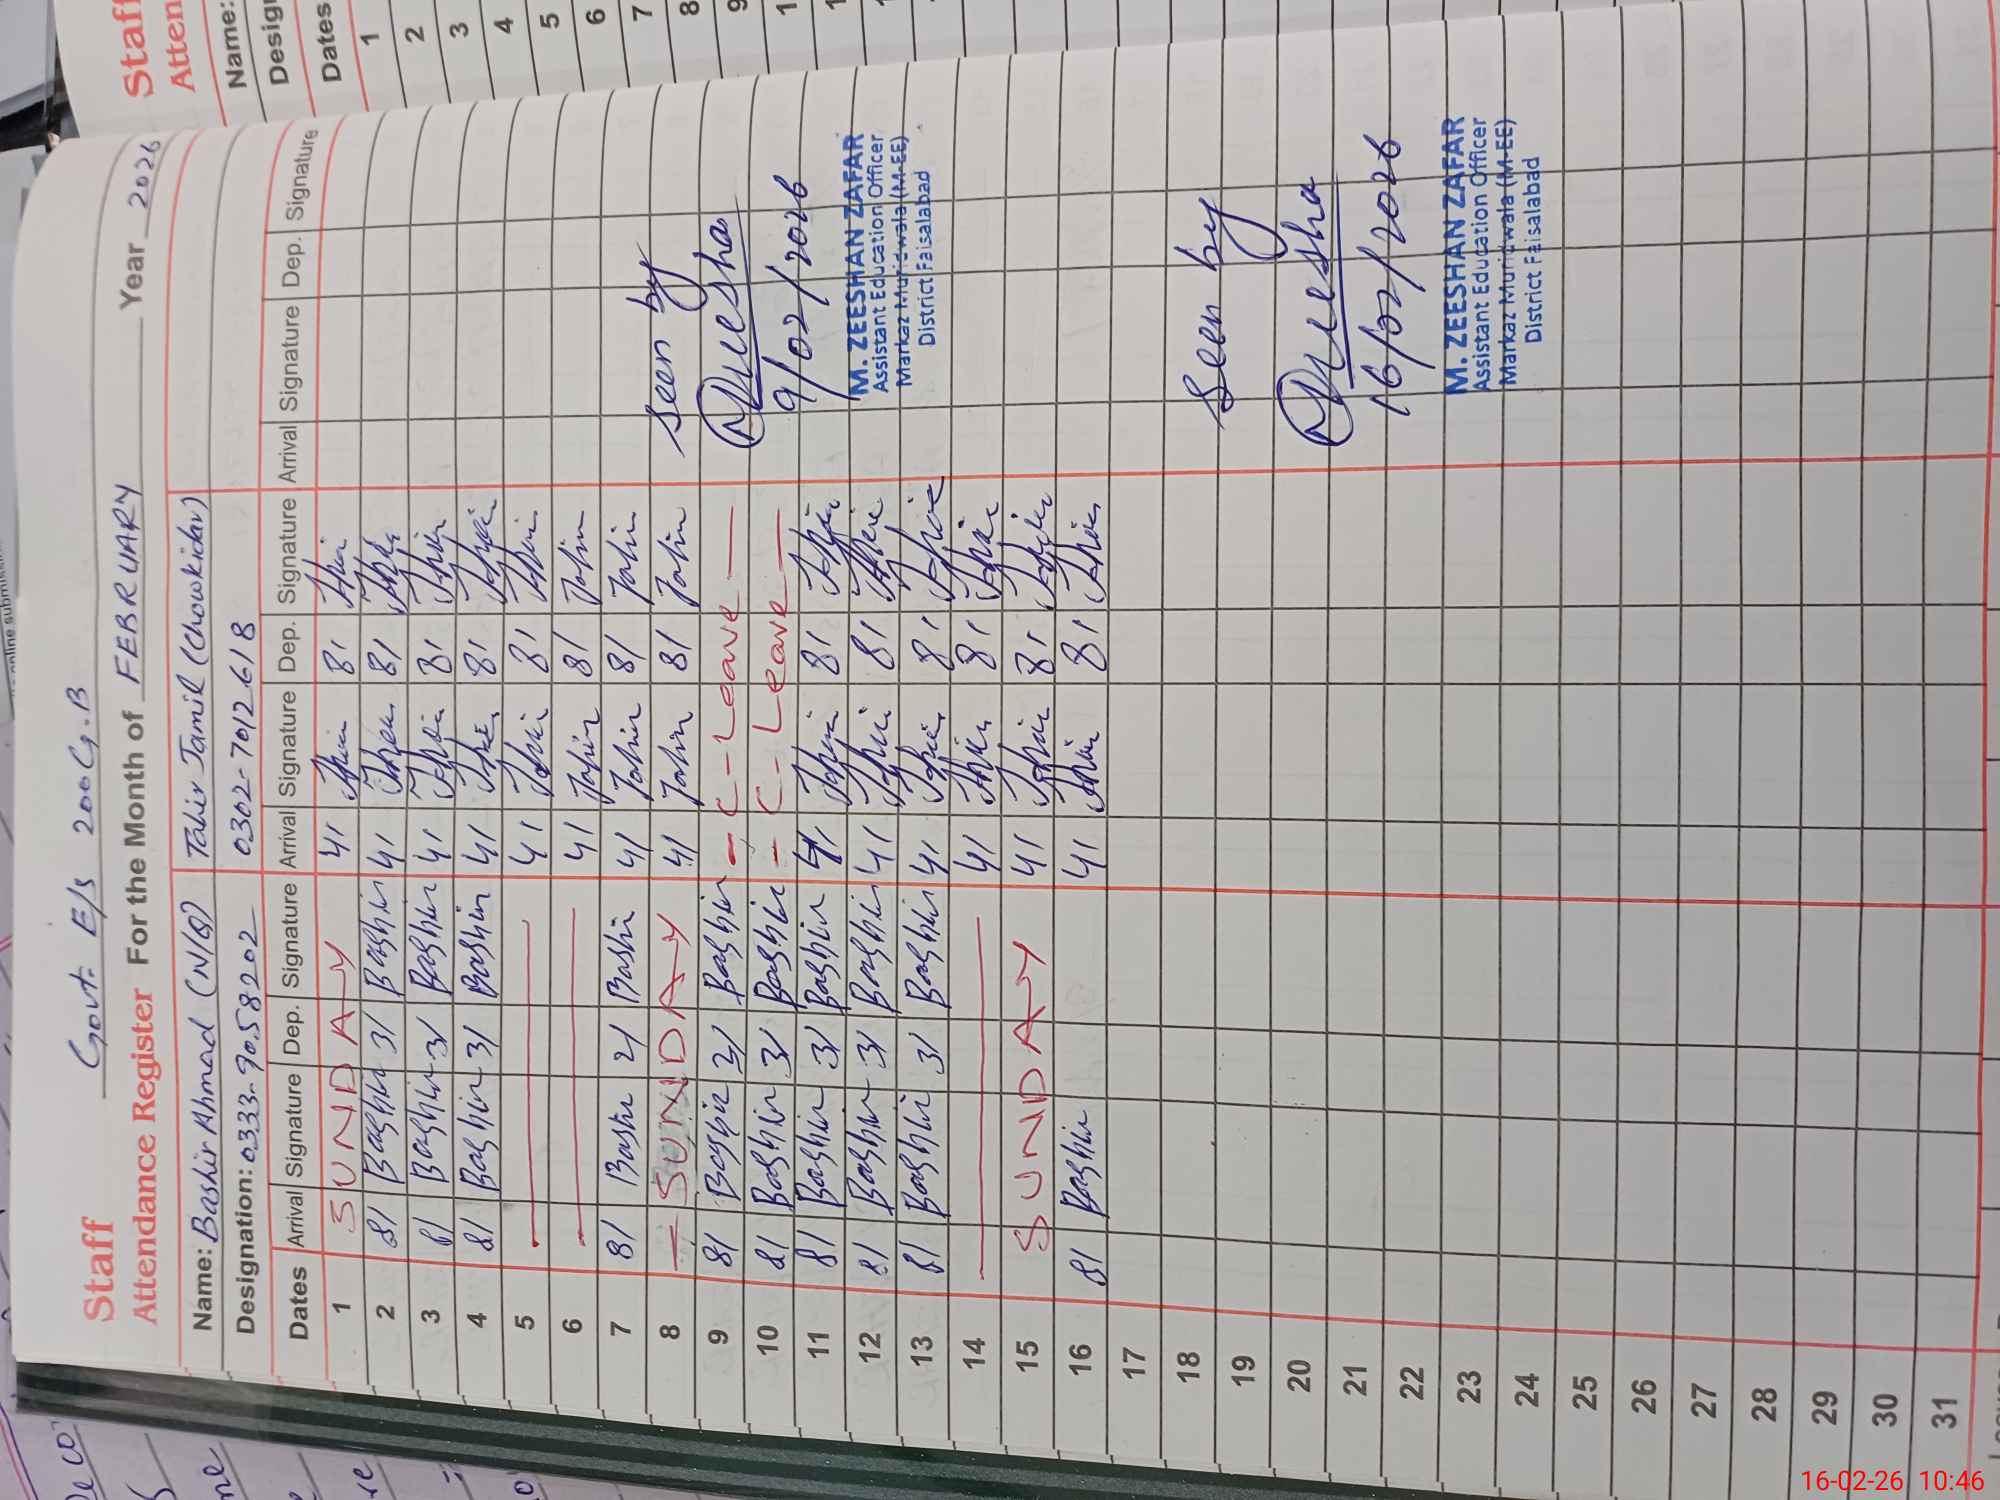 Staff
Govt. E/s 200 G.B
Attendance Register For the Month of FEBRUARY Year 2026
Name: Bashir Ahmad (N/Q) Tahir Jamil (Chowkidar)
Designation: 0333-9058202 0302-7012618
Dates Arrival Signature Dep. Signature Arrival Signature Dep. Signature Arrival Signature Dep. Signature
1 SUNDAY 4/ 8/
2 8/ Bashir 3/ Bashir 4/ 8/
3 8/ Bashir 3/ Bashir 4/ 8/
4 8/ Bashir 3/ Bashir 4/ 8/
5 4/ 8/
6 4/ Tahir 8/ Tahir
7 8/ Bashir 2/ Bashir 4/ Tahir 8/ Tahir
8 — SUNDAY 4/ Tahir 8/ Tahir
9 8/ Bashir 3/ Bashir — C-Leave —
10 8/ Bashir 3/ Bashir — C-Leave —
11 8/ Bashir 3/ Bashir 4/ 8/
12 8/ Bashir 3/ Bashir 4/ 8/
13 8/ Bashir 3/ Bashir 4/ 8/
14 4/ 8/
15 SUNDAY 4/ 8/
16 8/ Bashir 4/ 8/
17
18
19
20
21
22
23
24
25
26
27
28
29
30
31
seen by
9/02/2026
M. ZEESHAN ZAFAR
Assistant Education Officer
Markaz Muridwala (M-EE)
District Faisalabad
seen by
16/02/2026
M. ZEESHAN ZAFAR
Assistant Education Officer
Markaz Muridwala (M-EE)
District Faisalabad
Staff
Atten
Name:
Desig
Dates
1
2
3
4
5
6
7
8
9
16-02-26 10:46